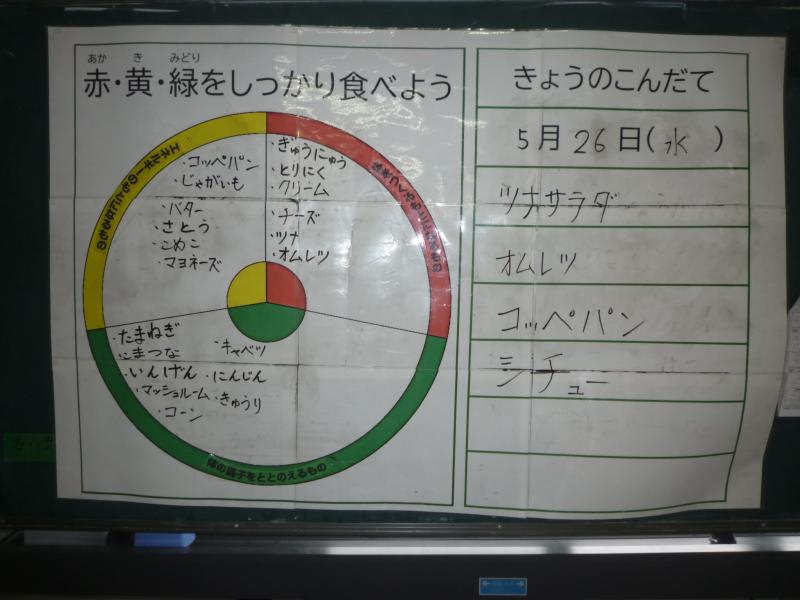 あか き みどり
赤・黄・緑をしっかり食べよう
エネルギーのもとになるもの
・コッペパン
・じゃがいも
・バター
・さとう
・こめこ
・マヨネーズ
・ぎゅうにゅう
・とりにく
・クリーム
・チーズ
・ツナ
・オムレツ
体をつくるもとになるもの
・たまねぎ
・こまつな
・キャベツ
・いんげん ・にんじん
・マッシュルーム ・きゅうり
・コーン
体の調子をととのえるもの
きょうのこんだて
5月26日(水)
ツナサラダ
オムレツ
コッペパン
シチュー